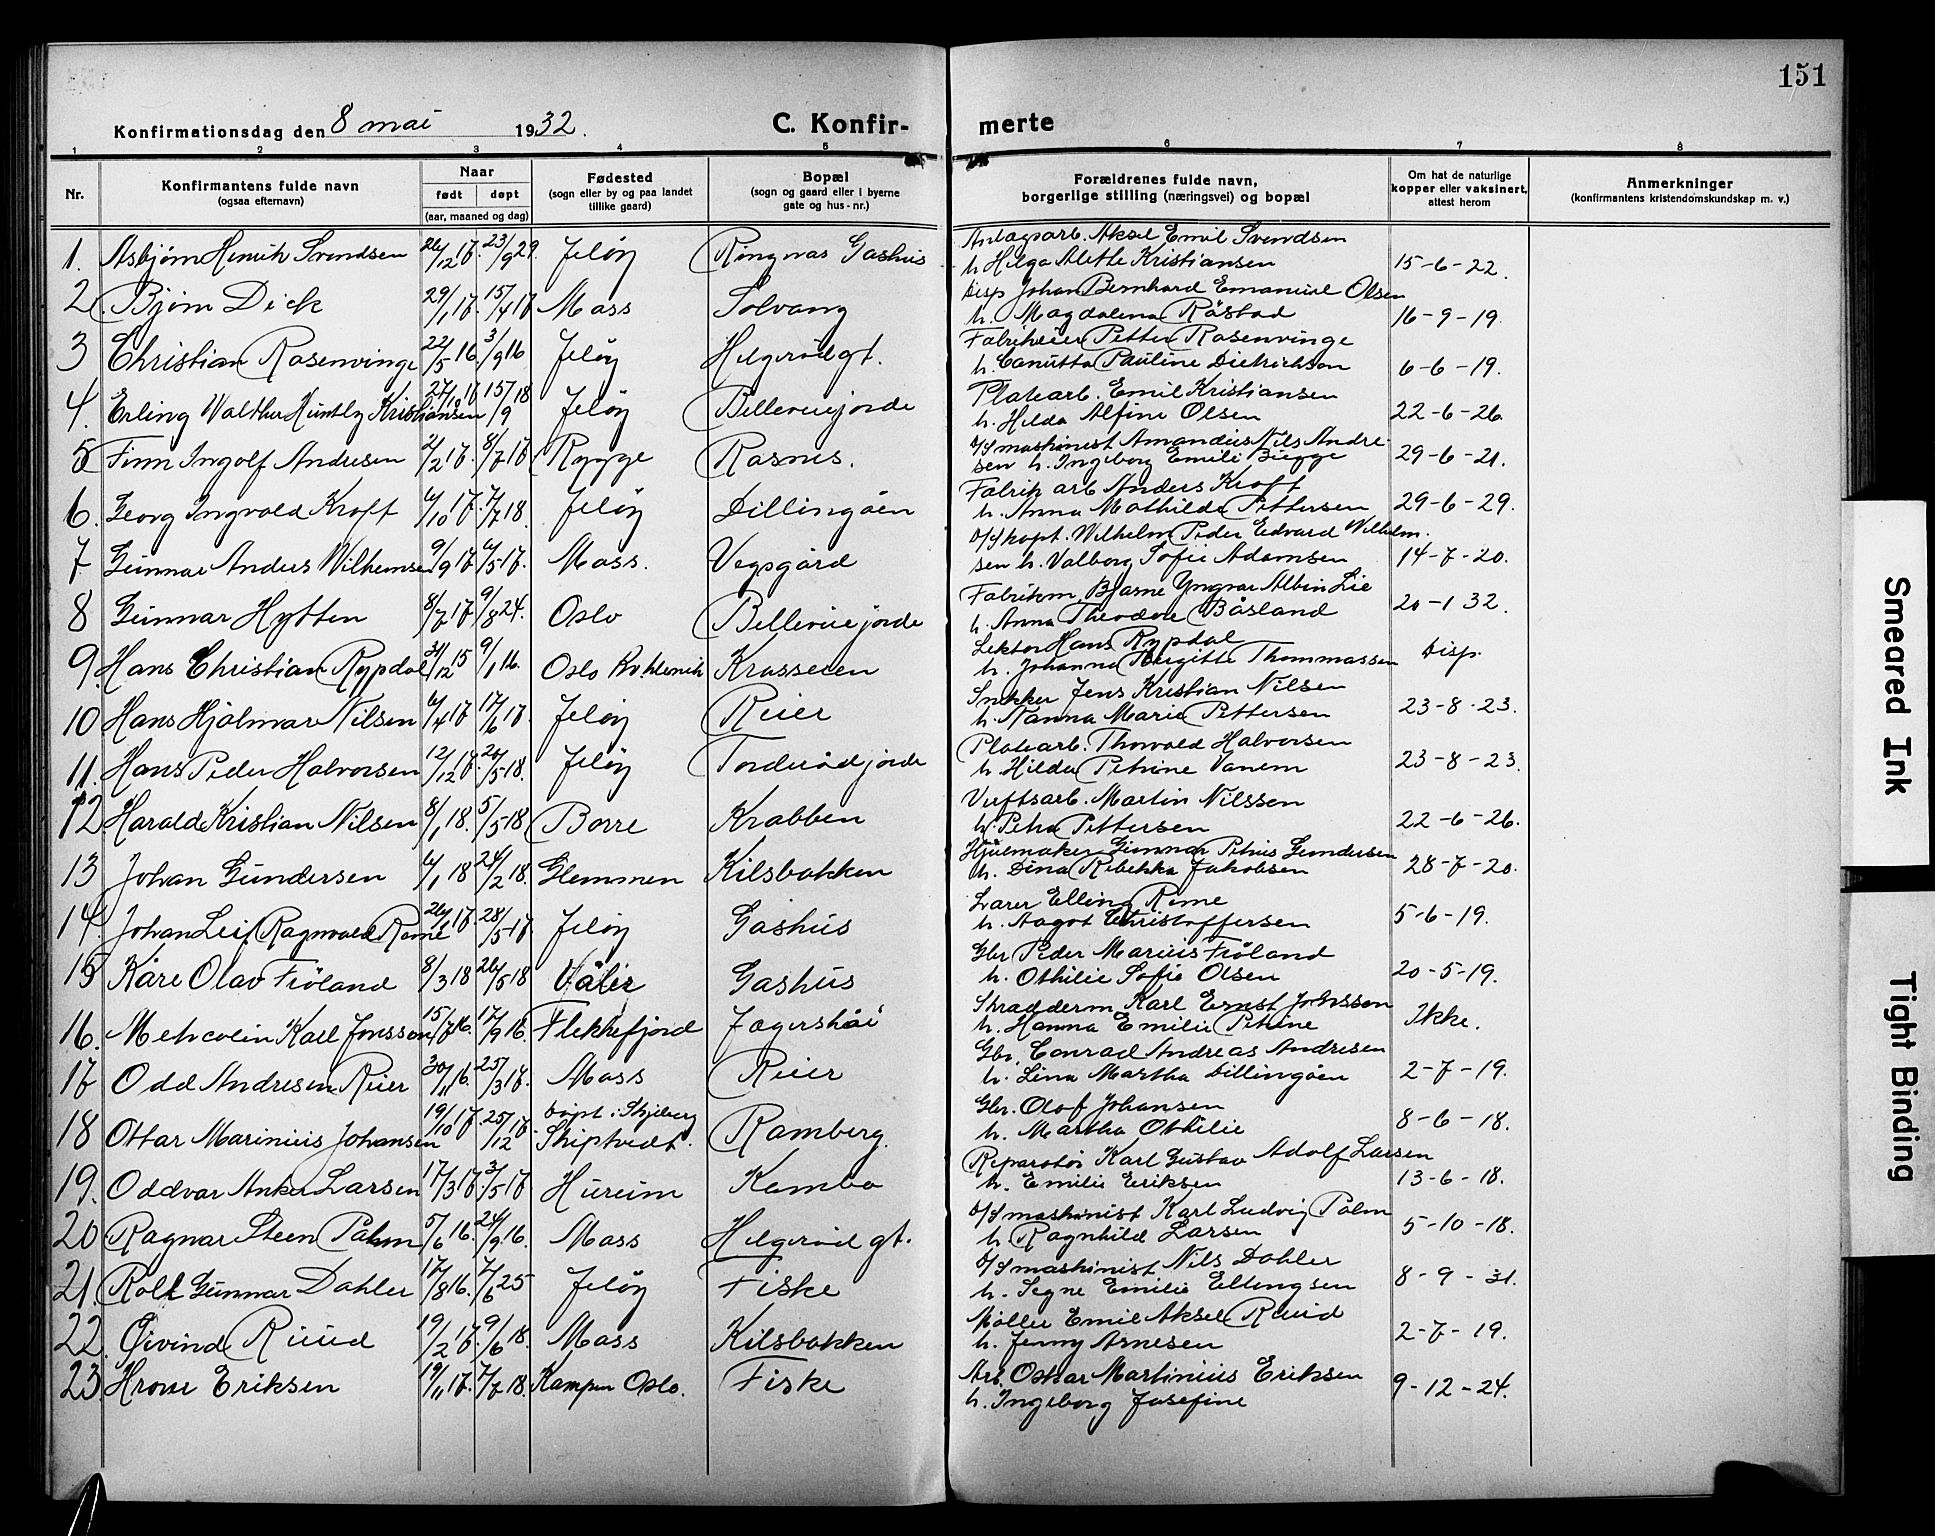 151
Konfirmationsdag den 8 mai 1932.
C. Konfir-
merte
1 2 3 4 5 6 7 8
Nr.
Konfirmantens fulde navn
(ogsaa efternavn)
Naar
født døpt
(aar, maaned og dag)
Fødested
(sogn eller by og paa landet
tillike gaard)
Bopæl
(sogn og gaard eller i byerne
gate og hus-nr.)
Forældrenes fulde navn,
borgerlige stilling (næringsvei) og bopæl
Om hat de naturlige
kopper eller vaksinert,
attest herom
Anmerkninger
(konfirmantens kristendomskundskap m. v.)
1. Asbjørn Henrik Svendsen 26/12 17. 23/9 29 Jeløy Ringnas Gashus
Anlagsarb. Aksel Emil Svendsen
h. Helga Alette Kristiansen 15-6-22.
2. Bjørn Dick 29/1 17. 15/4 17 Moss Solvang
Disp Johan Bernhard Emanuel Olsen
h. Magdalena Råstad 16-9-19.
3 Christian Rosenvinge 22/5 16. 3/9 16 Jeløy Helgerødgt.
Fabrikeier Petter Rosenvinge
h. Canutta Pauline Dietrichson 6-6-19.
4. Erling Walther Huntly Kristiansen 15/9 18 Jeløy Bellevuejorde
Platearb. Emil Kristiansen
h. Hilda Alfine Olsen 22-6-26
5 Finn Ingolf Andresen 2/2 17. 8/7 17 Rygge Rosnes.
D/S maskinest Amandus Nils Andre-
sen h. Ingeborg Emilie Bugge 29-6-21.
6. Georg Ingvald Kroft 6/10 17. 7/7 18. Jeløy Dillingøen
Fabrik arb Anders Kroft
h. Anna Mathilde Pettersen 29-6-29.
7 Gunnar Anders Wilhemsen 9/9 17 6/5 17. Moss. Vegsgård
D/S kapt. Wilhelm Peder Edvard Wilhelm.
sen h. Valborg Sofie Adamsen 14-7-20.
8 Gunnar Hytten 8/7 17 9/8 24. Oslo Bellevuejorde
Fabrikm. Bjarne Yngvar Albin Lie
h. Anna Theodore Båsland 20-1 32.
9. Hans Christian Rypdal 31/12 15 9/1 16. Oslo Kv.klinik Krosseren
Lektor Hans Rypdal
h. Johanna Birgitte Thommassen Disp.
10 Hans Hjalmar Nilsen 6/4 17 17/6 17. Jeløy Reier
Snekker Jens Kristian Nilsen
h. Nanna Marie Pettersen 23-8-23.
11. Hans Peder Halvorsen 12/12 17. 20/5 18. Jeløy Torderødjorde
Platearb. Thorvald Halvorsen
h. Hilda Petrine Vanem 23-8-23.
12 Harald Kristian Nilsen 8/1 18. 5/5 18 Borre Krabben
Verftsarb. Martin Nilssen
h. Petra Pettersen 22-6-26.
13 Johan Gundersen 6/1 18 24/2 18. Glemmen Kilsbakken
Hjulmaker Gunnar Petrus Gundersen
h. Dina Rebekka Jakobsen 28-7-20.
14. Johan Leif Ragnvald Rome 28/5 17. Jeløy Gashus
Lærer Elling Rome
h. Aagot Christoffersen 5-6-19.
15 Kåre Olav Frøland 8/3 18 26/5 18 Våler Gashus
Gbr Peder Marius Frøland
h. Othilie Sofie Olsen 20-5-19.
16. Mehcolin Karl Jonsson 15/7 16. 17/9 16. Flekkefjord Jægershøi
Skradderm. Karl Ernst Johnsson
h. Hanna Emilie Petrine Ikke.
17 Odd Andresen Reier 30/11 16. 25/3 17. Moss Reier
Gbr. Conrad Andreas Andresen
h. Lina Martha Dillingøen 2-7-19.
18 Ottar Marinius Johansen 19/10 17. 25/12 17 døpt i Skjeberg
Skiptvedt. Ramberg.
Gbr. Olaf Johansen
h. Martha Othilie 8-6-18.
19. Oddvar Anker Larsen 17/3 17. 3/5 17 Hurum Kambo
Reparatør Karl Gustav Adolf Larsen
h. Emilie Eriksen 13-6-18.
20 Ragnar Steen Palm 5/6 16. 24/9 16. Moss Helgerød gt.
D/S maskinist Karl Ludvig Palm
h Ragnhild Larsen 5-10-18.
21. Rolf Gunnar Dahler 17/8 16. 7/6 25 Jeløy Fiske
D/S maskinist Nils Dahler
h. Segne Emilie Ellingsen 8-9-31.
22. Øivind Ruud 19/2 17. 9/6 18. Moss Kilsbakken
Møller Emil Aksel Ruud
h. Jenny Arnesen 2-7-19.
23. Hrom Eriksen 19/11 17. 7/7 18. Kampen Oslo. Fiske
Arb. Oskar Martinius Eriksen
h. Ingeborg Josefine 9-12-24.
Smeared Ink
Tight Binding